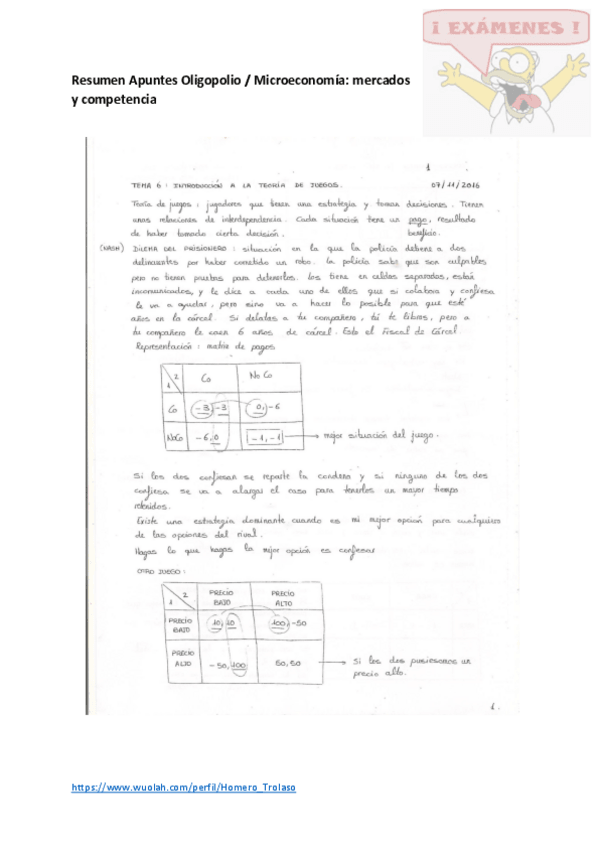 ¡ EXÁMENES !
Resumen Apuntes Oligopolio / Microeconomía: mercados
y competencia
1
TEMA 6: INTRODUCCIÓN A LA TEORÍA DE JUEGOS. 07/11/2016
Teoría de juegos: jugadores que tienen una estrategia y toman decisiones. Tienen
unas relaciones de interdependencia. Cada situación tiene un pago, resultado
de haber tomado cierta decisión. beneficio.
(NASH) DILEMA DEL PRISIONERO: situación en la que la policía detiene a dos
delincuentes por haber cometido un robo. La policía sabe que son culpables
pero no tienen pruebas para detenerlos. Los tiene en celdas separadas, están
incomunicados, y le dice a cada uno de ellos que si colabora y confiesa
le va a ayudar, pero sino va a hacer lo posible para que esté
años en la cárcel. Si delatas a tu compañero, tú te libras, pero a
tu compañero le caen 6 años de cárcel. Esto el Fiscal de Cárcel.
Representación: matriz de pagos
2
1
Co No Co
Co -3,-3 0,-6
NoCo -6,0 -1,-1 → mejor situación del juego.
Si los dos confiesan se reparte la condena y si ninguno de los dos
confiesa se va a alargar el caso para tenerlos un mayor tiempo
retenidos.
Existe una estrategia dominante cuando es mi mejor opción para cualquiera
de las opciones del rival.
Hagas lo que hagas la mejor opción es confesar
OTRO JUEGO:
2
1
PRECIO BAJO PRECIO ALTO
PRECIO BAJO 10,10 100,-50
PRECIO ALTO -50,100 50,50 → Si los dos pusiesen un
precio alto.
1.
https://www.wuolah.com/perfil/Homero_Trolaso